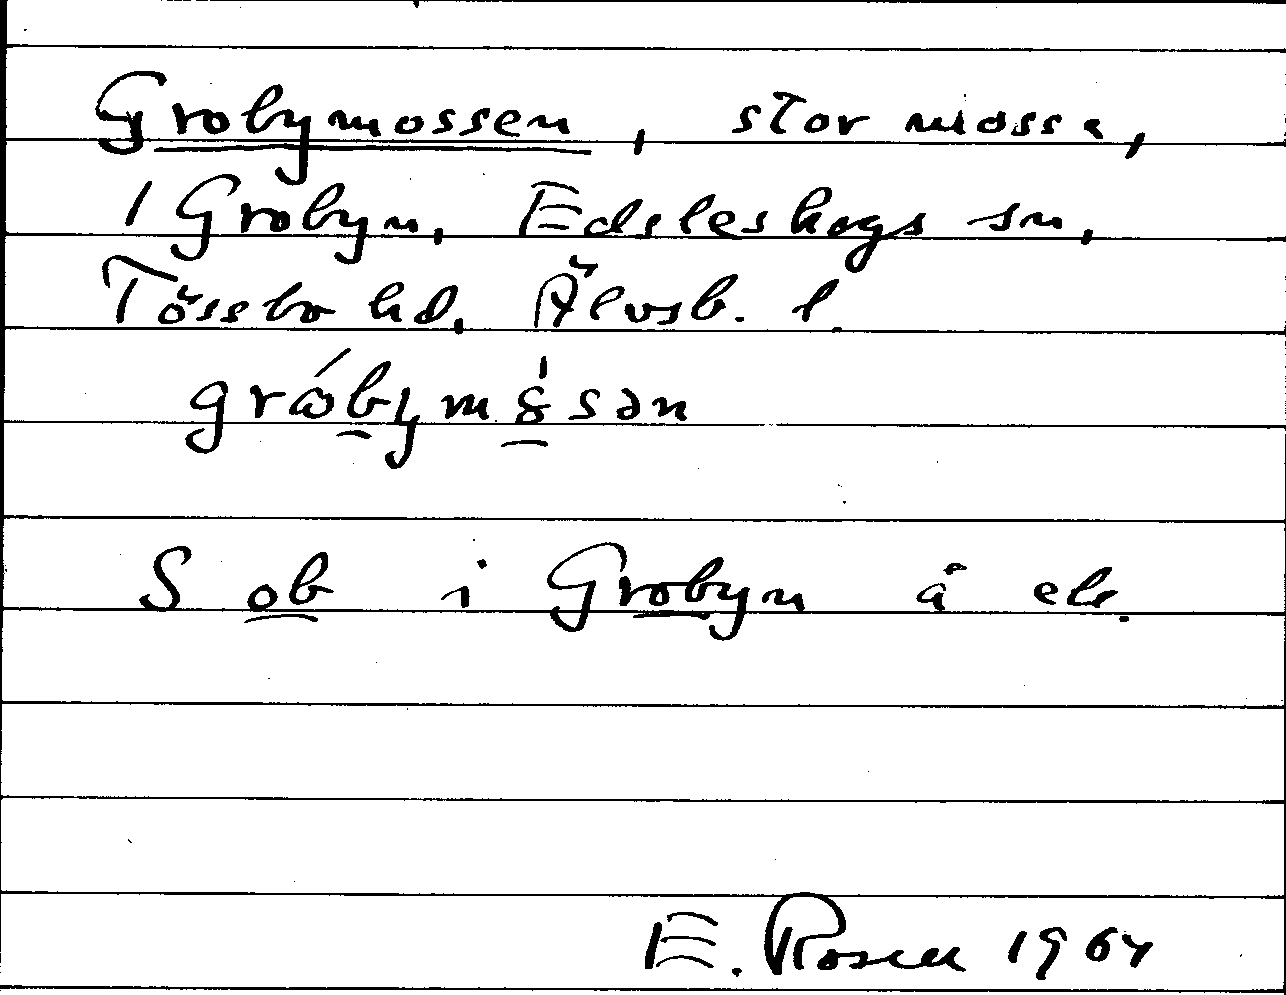 Grobymossen, stor mosse,
i Grobyn, Edsleskogs sn,
Tössbo hd, Älvsb. l.
S ob i Grobyn å ek.
E. Rosell 1964